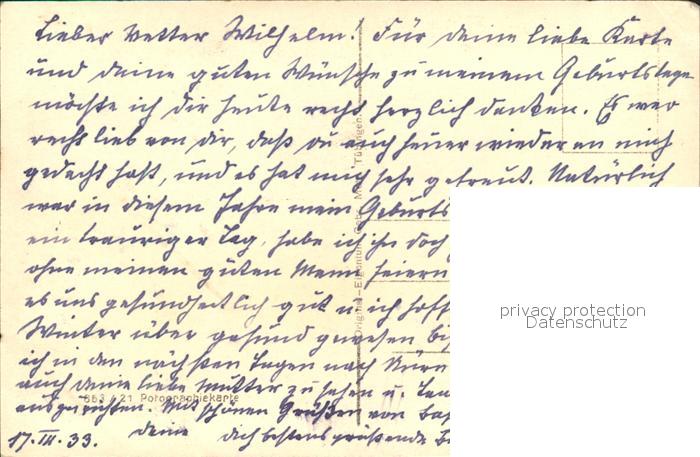 Lieber Vetter Wilhelm! Für deine liebe Karte
und deine guten Wünsche zu meinem Geburtstage
möchte ich dir heute recht herzlich danken. Es war
recht lieb von dir, daß du auch heuer wieder an mich
gedacht hast, und es hat mich sehr gefreut. Natürlich
war in diesem Jahre mein Geburts
ein trauriger Tag, habe ich ihn doch
ohne meinen guten Mann feiern
es uns gesundheitlich gut u. ich hoff
Winter über gesund gewesen bi
ich in den nächsten Tagen nach Nürn
auch deine liebe Mutter zu sehen u.
auszurichten. Mit schönen Grüßen von
17.III.33. deine dich bestens grüßende
863 / 21 Potographiekarte
Original-Eigentum Gebr. Metz, Tübingen
privacy protection
Datenschutz